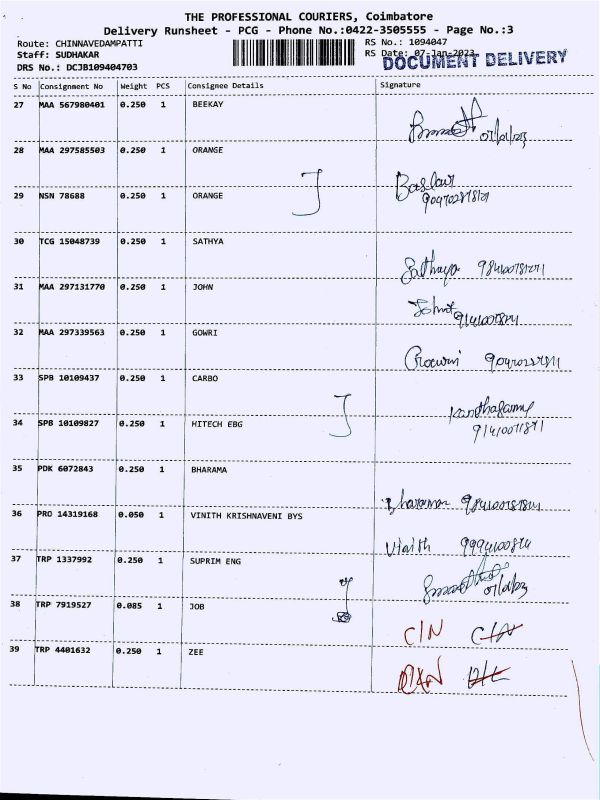 THE PROFESSIONAL COURIERS, Coimbatore
Delivery Runsheet - PCG - Phone No.:0422-3505555 - Page No.:3
Route: CHINNAVEDAMPATTI
Staff: SUDHAKAR
DRS No.: DCJB109404703
RS No.: 1094047
RS Date: 07-Jan-2023
DOCUMENT DELIVERY
S No Consignment No Weight PCS Consignee Details Signature
27 MAA 567980401 0.250 1 BEEKAY
28 MAA 297585503 0.250 1 ORANGE
29 NSN 78688 0.250 1 ORANGE
30 TCG 15048739 0.250 1 SATHYA
Sathya
31 MAA 297131770 0.250 1 JOHN
32 MAA 297339563 0.250 1 GOWRI
Gowri
33 SPB 10109437 0.250 1 CARBO
34 SPB 10109827 0.250 1 HITECH EBG
35 PDK 6072843 0.250 1 BHARAMA
36 PRO 14319168 0.050 1 VINITH KRISHNAVENI BYS
37 TRP 1337992 0.250 1 SUPRIM ENG
38 TRP 7919527 0.085 1 JOB
C/N C/N
39 TRP 4401632 0.250 1 ZEE